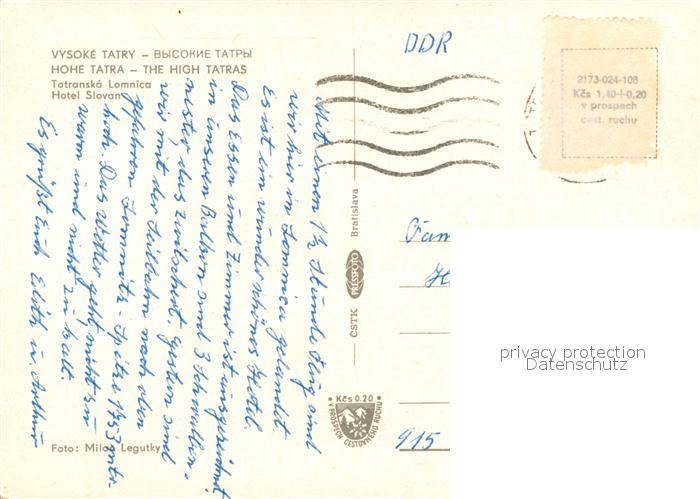 VYSOKÉ TATRY – ВЫСОКИЕ ТАТРЫ
HOHE TATRA – THE HIGH TATRAS
Tatranská Lomnica
Hotel Slovan
DDR
2173-024-108
Kčs 1,40+0,20
v prospech
cest. ruchu
Mit einen 1½ Stunde Flug sind
wir hier in Lomnica gelandet
Es ist ein wunderschönes Hotel.
Das Essen und Zimmer ist ausgezeichnet
in unseren Balkon sind 3 Schwalben-
nester das zwitschert. Gestern sind
wir mit der Seilbahn nach oben
gefahren Lomnitz-Spitze
hoch. Das Wetter geht, nicht zu
warm und nicht zu kalt.
Es grüßt Euch Edith u. Arthur
ČSTK PRESSFOTO Bratislava
Fam
Kčs 0.20
V PROSPECH CESTOVNÉHO RUCHU
915
Foto: Milan Legutky
privacy protection
Datenschutz